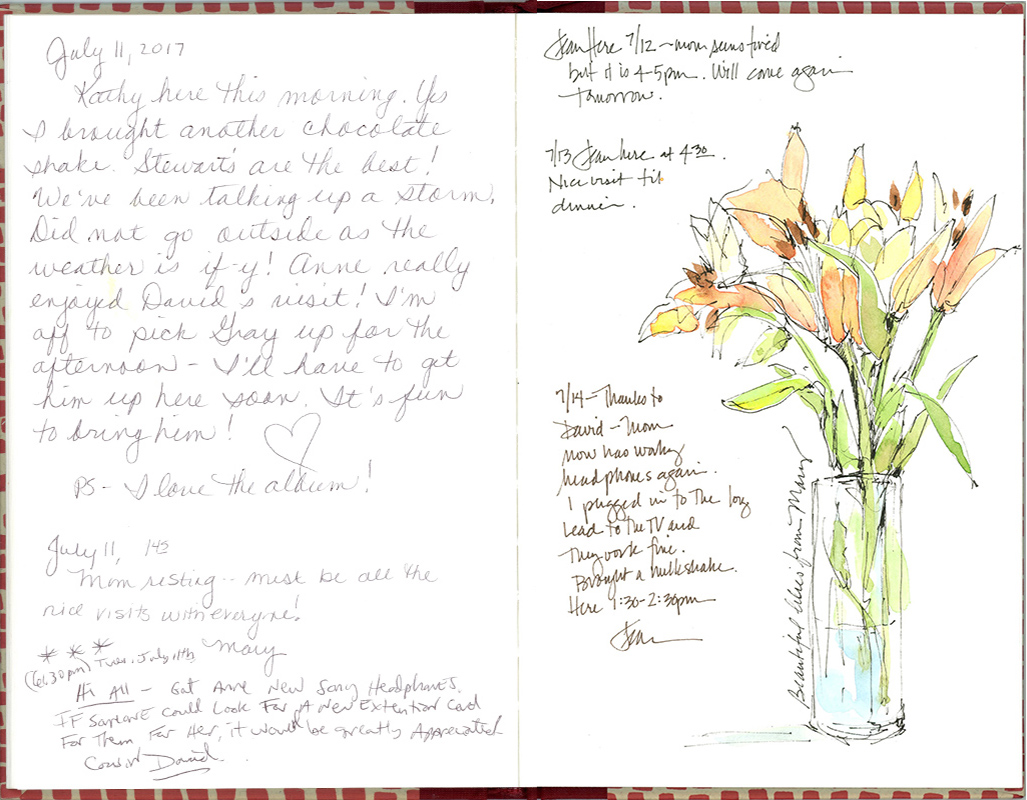 July 11, 2017
Kathy here this morning. Yes
I brought another chocolate
shake. Stewart's are the best!
We've been talking up a storm.
Did not go outside as the
weather is if-y! Anne really
enjoyed David's visit! I'm
off to pick Gray up for the
afternoon - I'll have to get
him up here soon. It's fun
to bring him!
PS - I love the album!
July 11, 145
Mom resting -- must be all the
nice visits with everyone!
Mary
(6:30 pm) Tues. July 11th
Hi All - Got Anne New Sony Headphones.
If Someone could Look For A New Extention Cord
For Them, For Her, it would be greatly Appreciated
Cousin David
Jean Here 7/12 - mom seems tired
but it is 4-5pm. Will come again
tomorrow.
7/13 Jean here at 4:30.
Nice visit til
dinner.
7/14 - Thanks to
David - Mom
now has working
headphones again.
I plugged in to the long
lead to the TV and
they work fine.
Brought a milkshake.
Here 1:30-2:30pm
Jean
Beautiful lilies from Mary